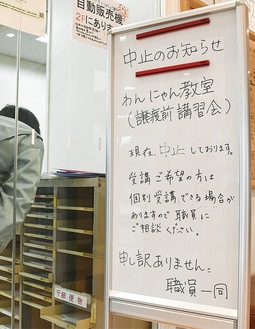 自動販売機
2Fにあります
中止のお知らせ
わんにゃん教室
(譲渡前講習会)
現在、中止しております。
受講ご希望の方は
個別受講できる場合が
ありますので職員に
ご相談ください。
申し訳ありません。
職員一同